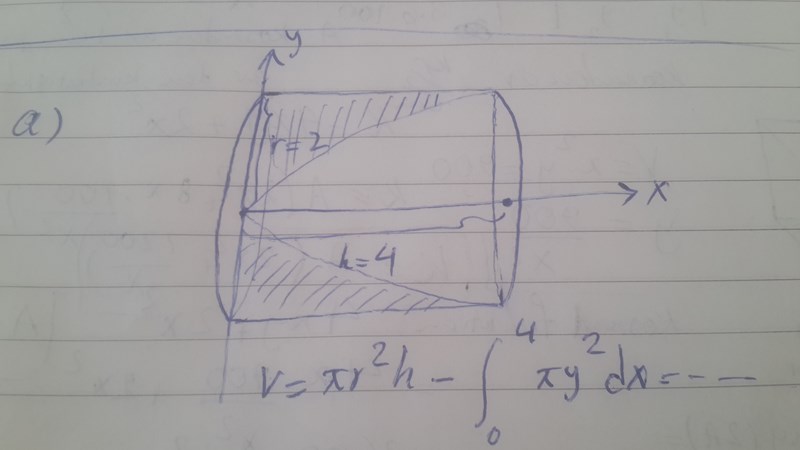 y
a)
r=2
x
h=4
V=πr²h-∫₀⁴πy²dx=---